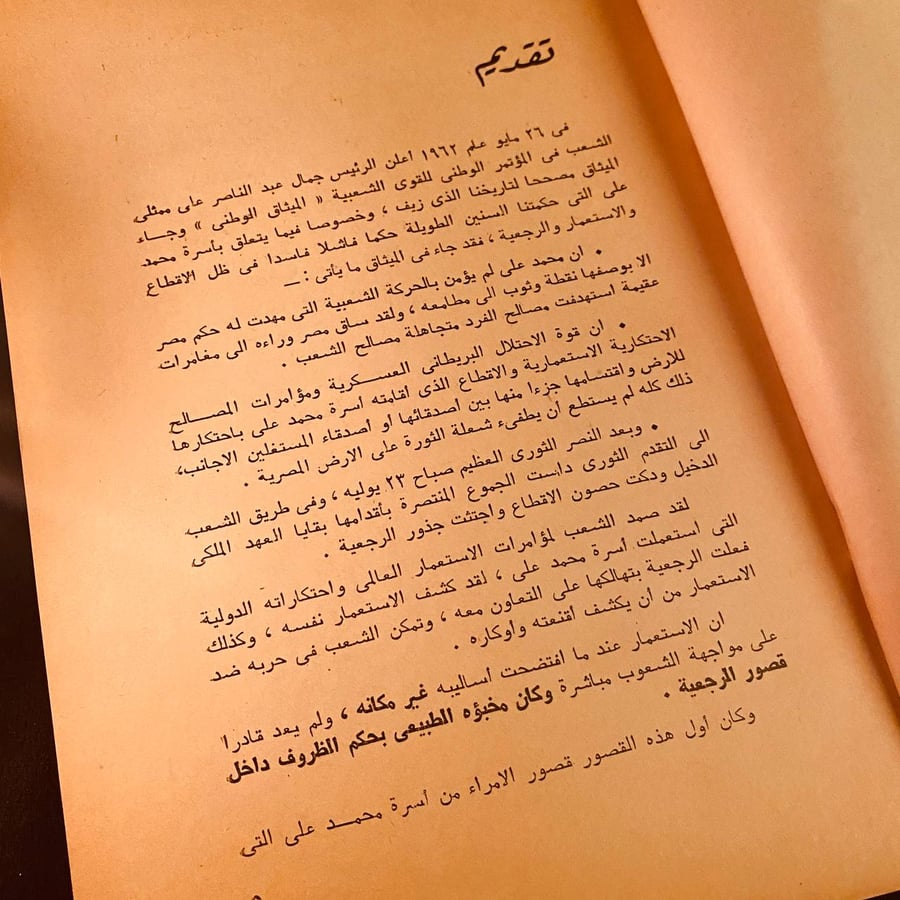 تقديم
فى ٢٦ مايو عام ١٩٦٢ أعلن الرئيس جمال عبد الناصر على ممثلى
الشعب فى المؤتمر الوطنى للقوى الشعبية « الميثاق الوطنى » وجــاء
الميثاق مصححا لتاريخنا الذى زيف ، وخصوصا فيما يتعلق بأسرة محمد
على التى حكمتنا السنين الطويلة حكما فاشلا فاسدا فى ظل الاقطاع
والاستعمار والرجعية ، فقد جاء فى الميثاق ما يأتى : ــ
• ان محمد على لم يؤمن بالحركة الشعبية التى مهدت له حكم مصر
الا بوصفها نقطة وثوب الى مطامعه ، ولقد ساق مصر وراءه الى مغامرات
عقيمة استهدفت مصالح الفرد متجاهلة مصالح الشعب .
• ان قوة الاحتلال البريطانى العسـكرية ومؤامرات المصــالح
الاحتكارية الاستعمارية والاقطاع الذى أقامته أسرة محمد على باحتكارها
للارض واقتسامها جزءا منها بين أصدقائها أو أصدقاء المستغلين الاجانب،
ذلك كله لم يستطع أن يطفىء شعلة الثورة على الارض المصرية .
• وبعد النصر الثورى العظيم صباح ٢٣ يوليه ، وفى طريق الشعب
الى التقدم الثورى داست الجموع المنتصرة بأقدامها بقايا العهد الملكى
الدخيل ودكت حصون الاقطاع واجتثت جذور الرجعية .
لقد صمد الشعب لمؤامرات الاستعمار العالى واحتكاراته الدولية
التى استعملت أسرة محمد على ، لقد كشف الاستعمار نفسه ، وكذلك
فعلت الرجعية بتهالكها على التعاون معه ، وتمكن الشعب فى حربه ضد
الاستعمار من أن يكشف أقنعته وأوكاره .
ان الاستعمار عند ما افتضحت أساليبه غير مكانه ، ولم يعد قادرا
على مواجهة الشعوب مباشرة وكان مخبؤه الطبيعى بحكم الظروف داخل
قصور الرجعية .
وكان أول هذه القصور قصور الامراء من أسرة محمــد على التى